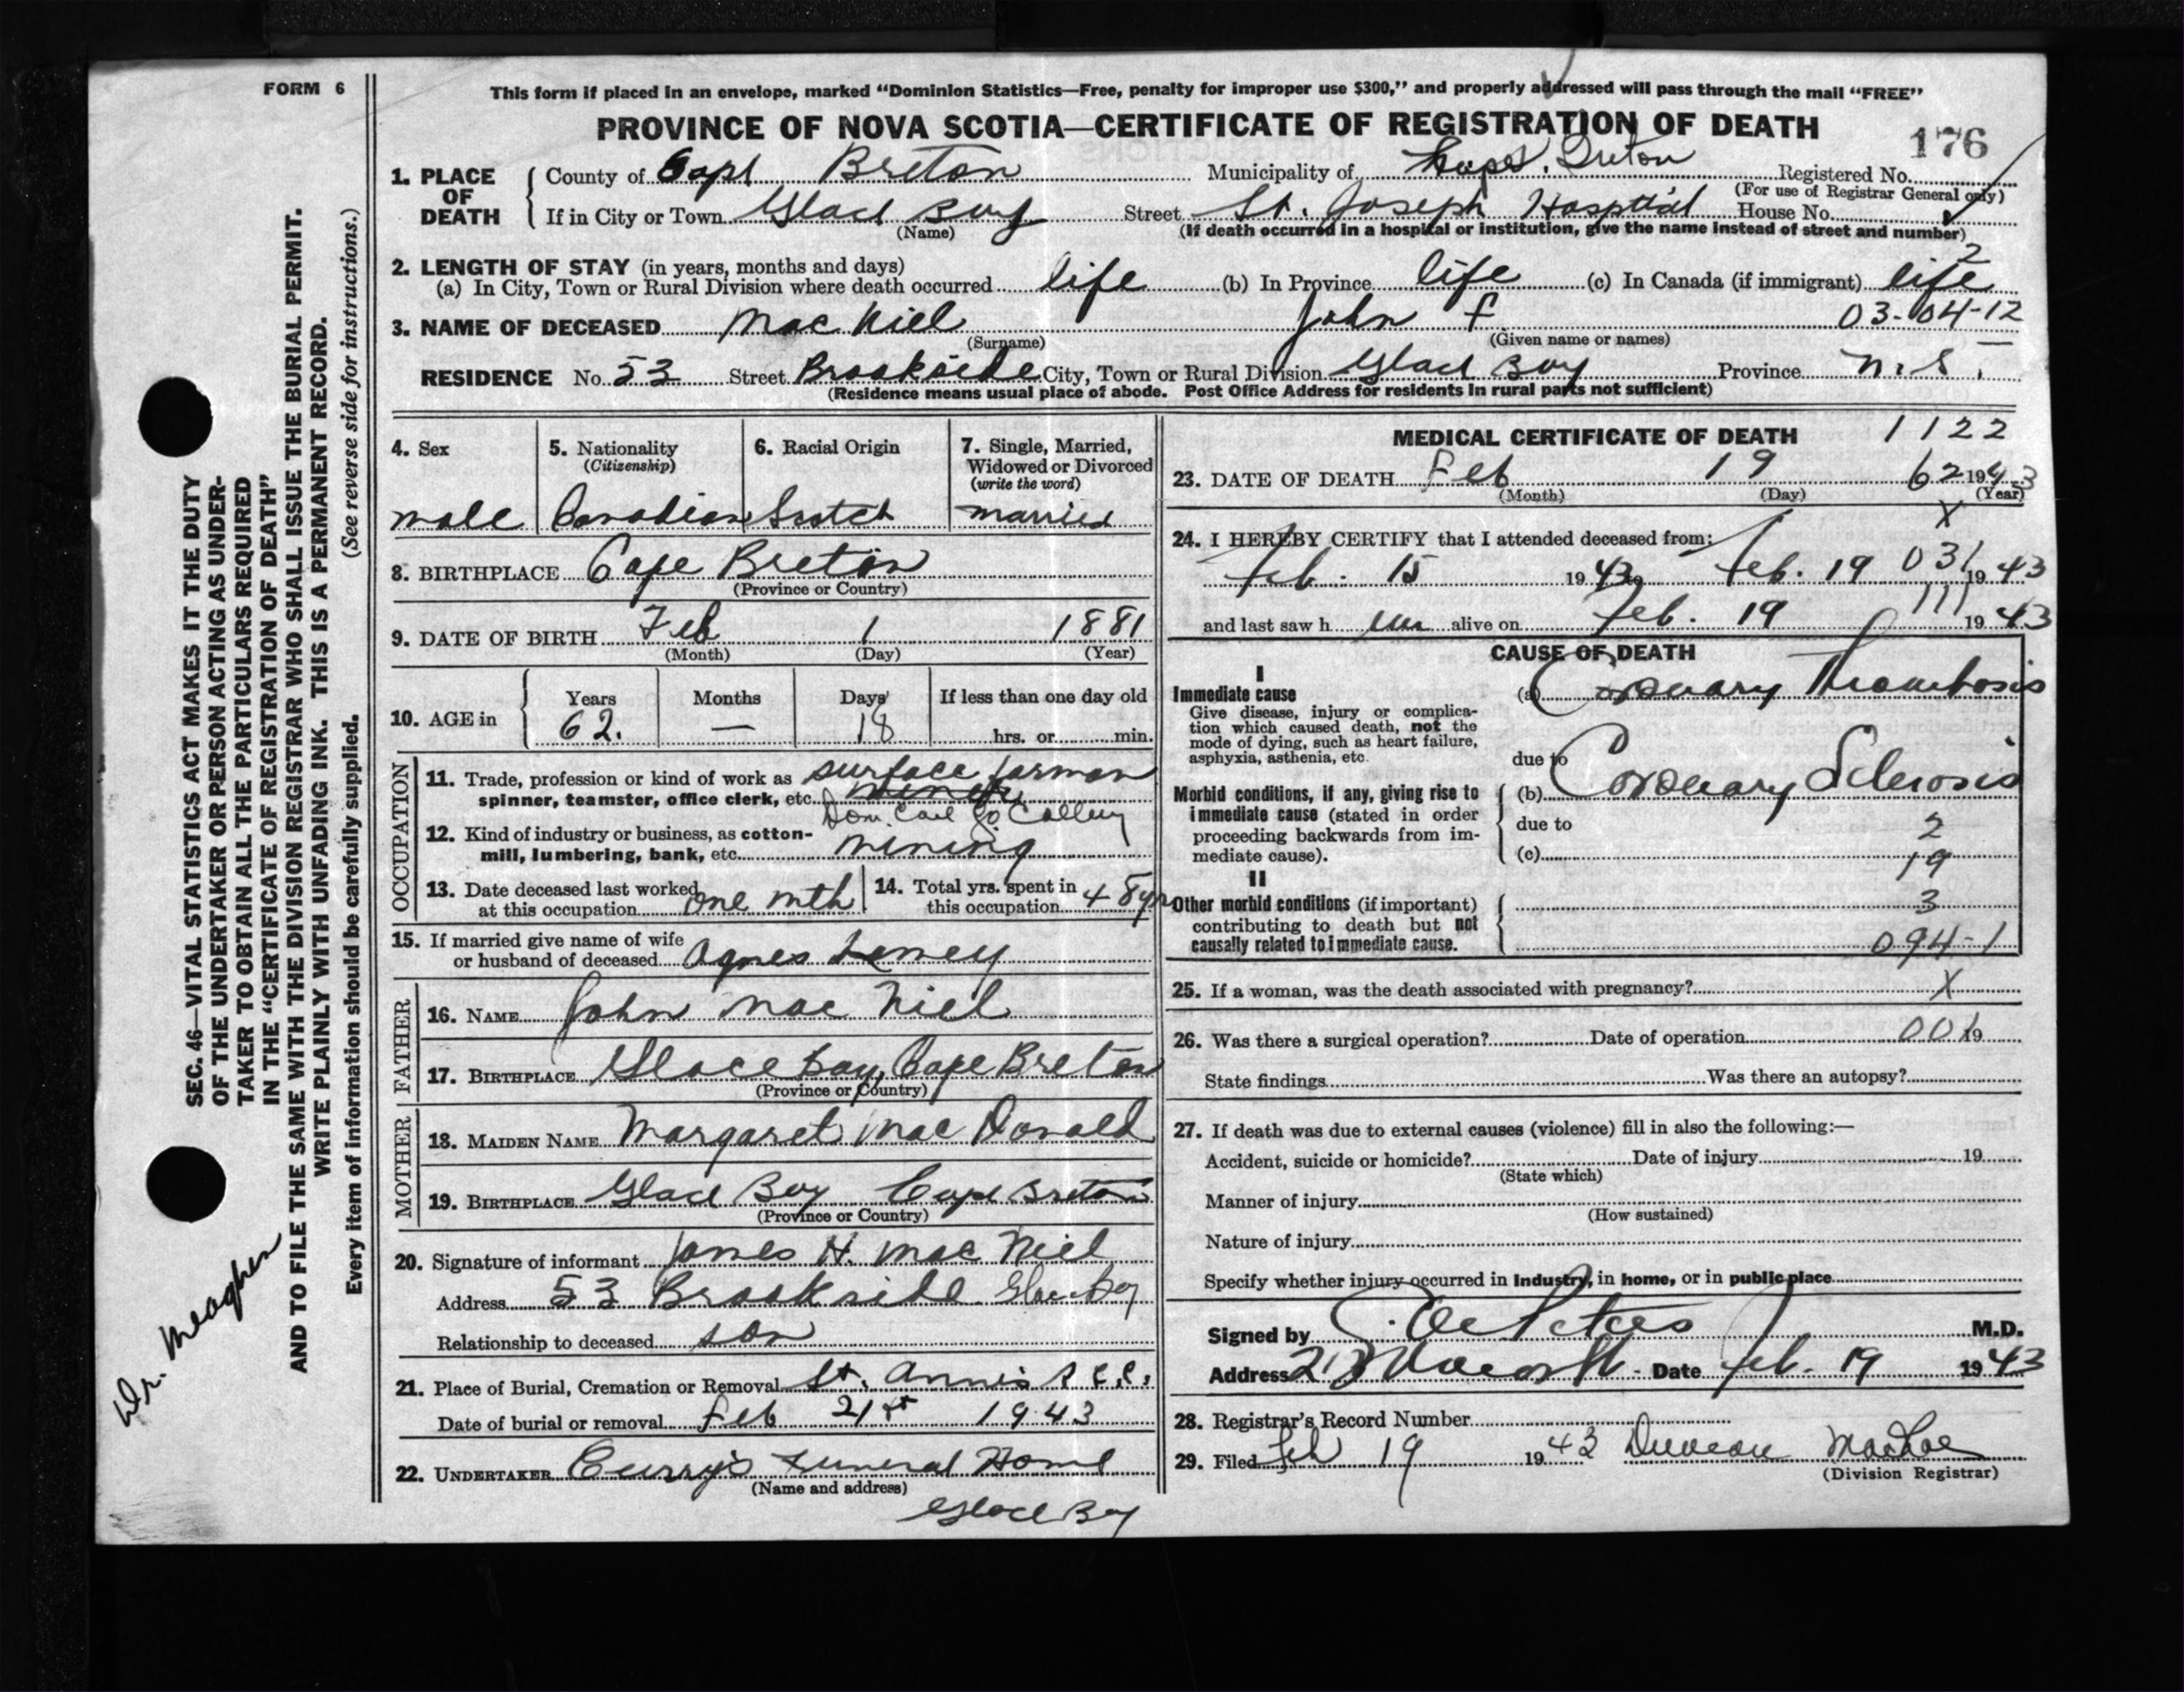 FORM 6
This form if placed in an envelope, marked "Dominion Statistics—Free, penalty for improper use $300," and properly addressed will pass through the mail "FREE"
PROVINCE OF NOVA SCOTIA—CERTIFICATE OF REGISTRATION OF DEATH
176
1. PLACE OF DEATH
County of Cape Breton Municipality of Cape Breton Registered No.
(For use of Registrar General only)
If in City or Town Glace Bay Street St. Joseph Hosptial House No.
(Name) (If death occurred in a hospital or institution, give the name instead of street and number)
2. LENGTH OF STAY (in years, months and days) 2
(a) In City, Town or Rural Division where death occurred life (b) In Province life (c) In Canada (if immigrant) life
3. NAME OF DECEASED Mac Niel John F 03-04-12
(Surname) (Given name or names)
RESIDENCE No. 53 Street Brookside City, Town or Rural Division Glace Bay Province N.S.
(Residence means usual place of abode. Post Office Address for residents in rural parts not sufficient)
4. Sex
male
5. Nationality
(Citizenship)
Canadian
6. Racial Origin
Scotch
7. Single, Married, Widowed or Divorced
(write the word)
married
8. BIRTHPLACE Cape Breton
(Province or Country)
9. DATE OF BIRTH Feb 1 1881
(Month) (Day) (Year)
10. AGE in
Years Months Days If less than one day old
62. — 18 hrs. or min.
OCCUPATION
11. Trade, profession or kind of work as surface forman
spinner, teamster, office clerk, etc. miner
Dom. Coal Co
12. Kind of industry or business, as cotton-
mill, lumbering, bank, etc. mining
13. Date deceased last worked
at this occupation one mth
14. Total yrs. spent in
this occupation 48 yrs
15. If married give name of wife
or husband of deceased Agnes
FATHER
16. NAME John Mac Niel
17. BIRTHPLACE Glace Bay, Cape Breton
(Province or Country)
MOTHER
18. MAIDEN NAME Margaret Mac Donald
19. BIRTHPLACE Glace Bay Cape Breton
(Province or Country)
20. Signature of informant James H. Mac Niel
Address 53 Brookside Glace Bay
Relationship to deceased son
21. Place of Burial, Cremation or Removal St. Anns R.C.C.
Date of burial or removal Feb 21st 1943
22. UNDERTAKER Curry's Funeral Home
(Name and address)
Glace Bay
MEDICAL CERTIFICATE OF DEATH 1122
23. DATE OF DEATH Feb 19 62 1943
(Month) (Day) (Year)
X
24. I HEREBY CERTIFY that I attended deceased from:
Feb. 15 1943 to Feb. 19 031 1943
111
and last saw h im alive on Feb. 19 1943
CAUSE OF DEATH
I
Immediate cause
Give disease, injury or complica-
tion which caused death, not the
mode of dying, such as heart failure,
asphyxia, asthenia, etc.
(a) Coronary Thrombosis
due to
Morbid conditions, if any, giving rise to
immediate cause (stated in order
proceeding backwards from im-
mediate cause).
(b) Coronary Sclerosis
due to 2
(c)
19
II
Other morbid conditions (if important)
contributing to death but not
causally related to immediate cause.
3
094-1
25. If a woman, was the death associated with pregnancy? X
26. Was there a surgical operation? Date of operation 001 19
State findings Was there an autopsy?
27. If death was due to external causes (violence) fill in also the following:—
Accident, suicide or homicide? Date of injury 19
(State which)
Manner of injury
(How sustained)
Nature of injury
Specify whether injury occurred in Industry, in home, or in public place
Signed by M.D.
Address Date Feb. 19 1943
28. Registrar's Record Number
29. Filed Feb 19 1943 Duncan
(Division Registrar)
SEC. 46—VITAL STATISTICS ACT MAKES IT THE DUTY
OF THE UNDERTAKER OR PERSON ACTING AS UNDER-
TAKER TO OBTAIN ALL THE PARTICULARS REQUIRED
IN THE "CERTIFICATE OF REGISTRATION OF DEATH"
AND TO FILE THE SAME WITH THE DIVISION REGISTRAR WHO SHALL ISSUE THE BURIAL PERMIT.
WRITE PLAINLY WITH UNFADING INK. THIS IS A PERMANENT RECORD.
Every item of information should be carefully supplied. (See reverse side for instructions.)
Dr. Meagher